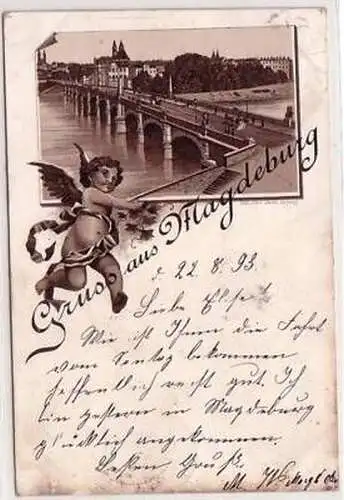 Gruss aus Magdeburg
d 22 8. 93.
Liebe Else!
Wie ist Ihnen die Fahrt
vom Sontag bekommen
hoffentlich recht gut. Ich
bin gestern in Magdeburg
glücklich angekommen.
Besten Gruß.
M.